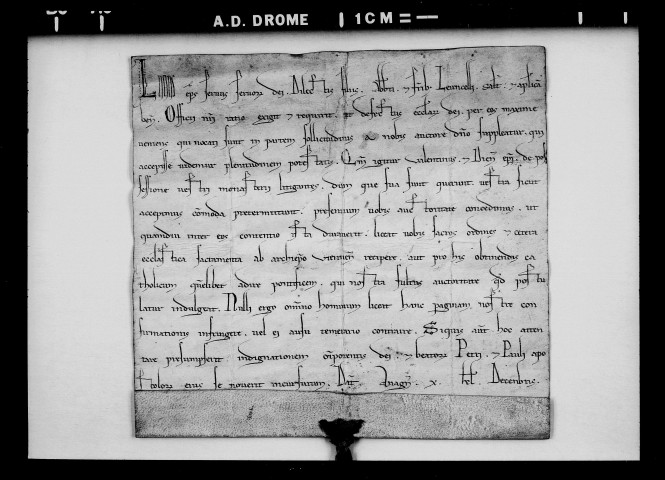 A.D. DROME 1CM
eps servus servor dei. Dilectis filiis. Abbi. & frib. Leoncelli. salt. & aplicā
ben. Officii nri ratio exigit & requirit. ut defectus ecclar dei. per eos maxime
qui vocati sunt in partem sollicitudinis a nobis auctore dno suppleatur. qui
accepisse videmur plenitudinem potestatis. Qm igitur Valentinus. & Dien epi. de pos
sessione vestri monasterii litigantes. dum que sua sunt querunt. vestra sicut
accepimus comoda pretermittunt. presentium vobis auctoritate concedimus. ut
quamdiu inter eos contentio ista duraverit. liceat vobis sacros ordines & cetera
ecclastica sacramenta ab archiepo Viennen recipere. aut pro his obtinendis ca
tholicum quelibet adire pontificem. qui nostra fultus auctoritate qd postu
latur indulgeat. Nulli ergo omino hominum liceat hanc paginam nostre con
firmationis infringere. vel ei ausu temerario contraire. Siquis aut hoc atten
tare presumpserit indignationem omipotentis dei. & beator Petri. & Pauli apo
stolor eius se noverit incursurum. Dat. Anagn. x. kl. Decembris.